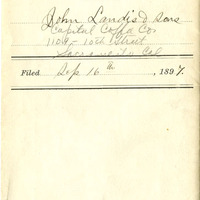 John Landis & Sons
Capital Coffee Co
1109 - 10th Street
Sacramento Cal
Filed Sep 16th, 1897.